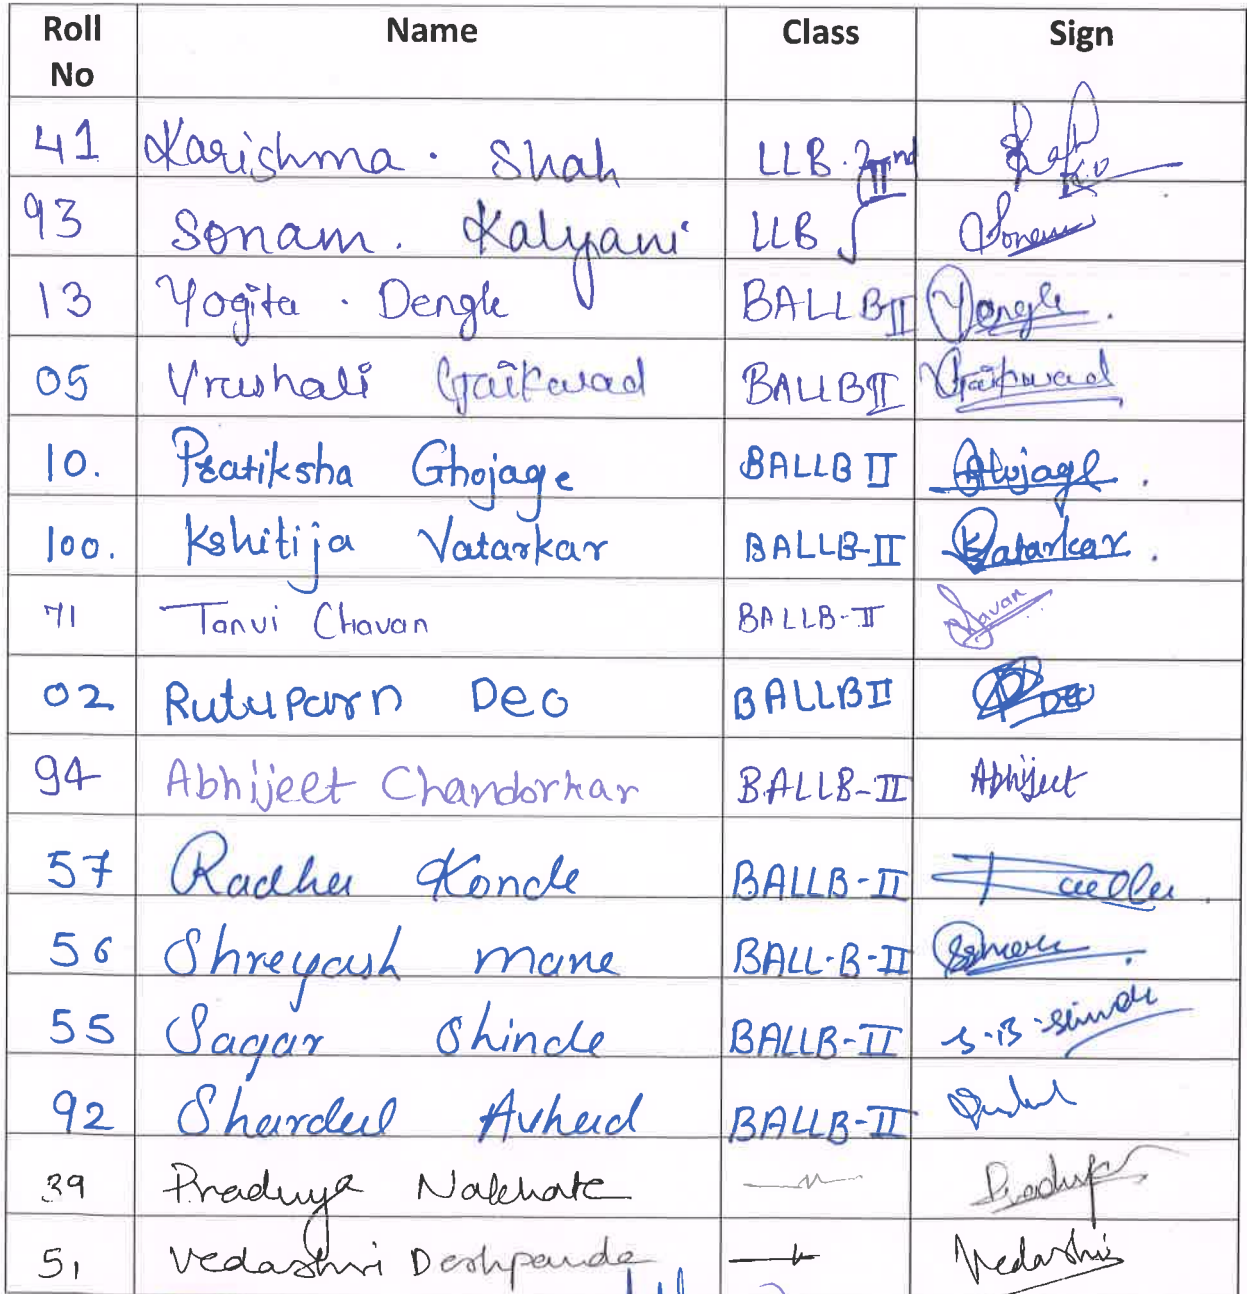 Roll No Name Class Sign
41 Karishma . Shah LLB . IInd
93 Sonam . Kalyani LLB
13 Yogita . Dengle BALLB II Dengle .
05 Vrushali Gaikwad BALLB II Gaikwad
10. Pratiksha Ghojage BALLB II Ghojage .
100. Kshitija Vatarkar BALLB-II Vatarkar .
71 Tanvi Chavan BALLB-II
02 Rutuparn Deo BALLB II Deo
94 Abhijeet Chandorkar BALLB-II Abhijeet
57 Radha Konde BALLB-II
56 Shreyash mane BALL-B-II
55 Sagar Shinde BALLB-II S.B.Shinde
92 Shardul Avhad BALLB-II
39 Pradnya Nakhate —"— Pradnya
51 Vedashri Deshpande Vedashri